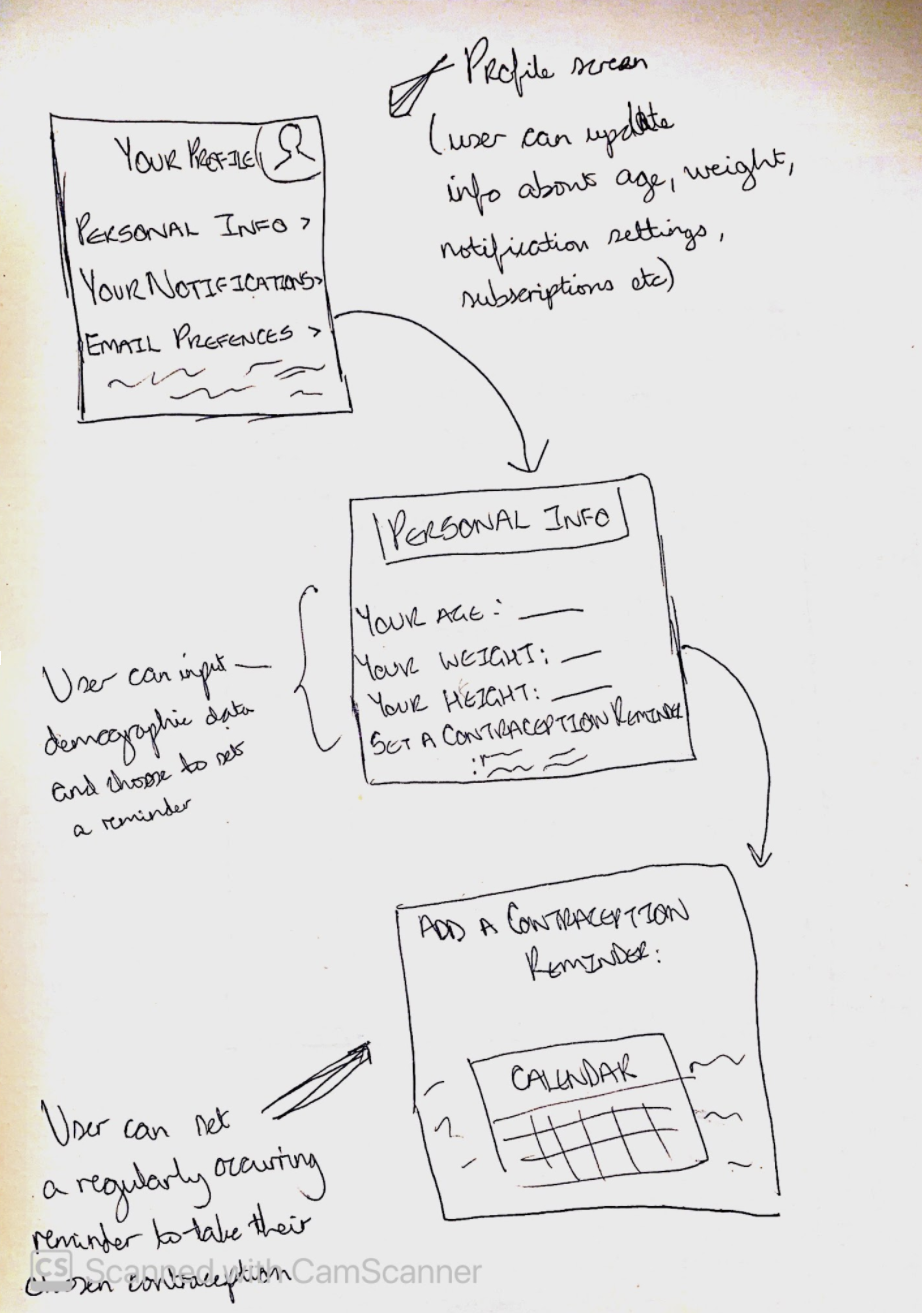 Profile screen
(user can update
info about age, weight,
notification settings,
subscriptions etc)
YOUR PROFILE
PERSONAL INFO >
YOUR NOTIFICATIONS>
EMAIL PREFENCES >
PERSONAL INFO
YOUR AGE:
YOUR WEIGHT:
YOUR HEIGHT:
SET A CONTRACEPTION REMINDER
:
User can input
demographic data
and choose to set
a reminder
ADD A CONTRACEPTION
REMINDER:
CALENDAR
User can set
a regularly occuring
reminder to take their
chosen contraception
CS Scanned with CamScanner